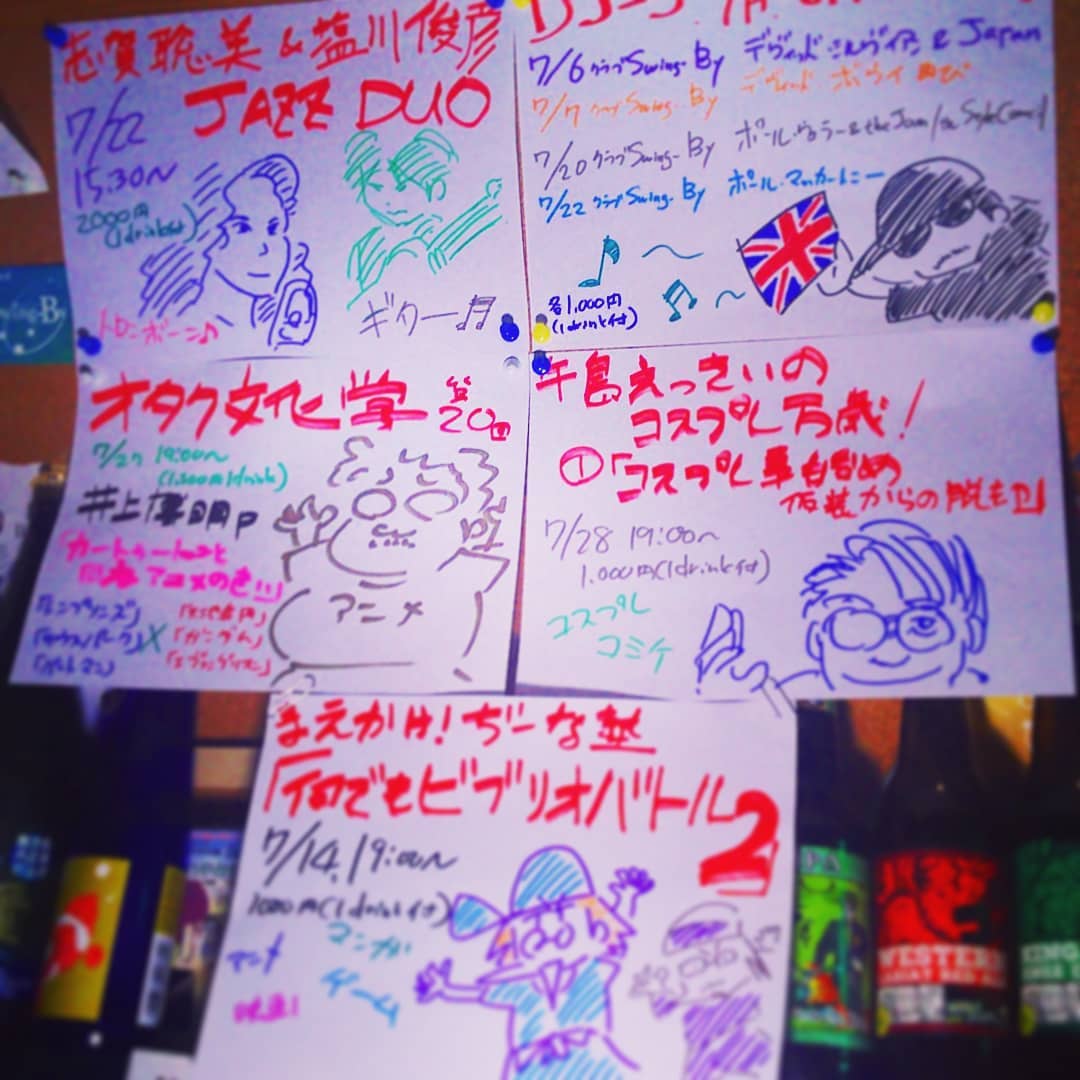 志賀聡美&塩川俊彦
JAZZ DUO
7/22
15:30〜
2000円
(1drink付)
トロンボーン♪
ギター♬
7/6 クラブSwing-By デヴィッド・シルヴィアン&Japan
7/7 クラブSwing-By デヴィッド ボウイ
7/20 クラブSwing-By ポール・ウェラー&the Jam/the Style Council
7/22 クラブSwing-By ポール・マッカートニー
各1,000円
(1drink付)
オタク文化学 第20回
7/27 19:00〜
井上博明P
「カートゥーンと
日本アニメのちがい」
「シンプソンズ」
「サウスパーク」X「ガンダム」
「バットマン」「エヴァンゲリオン」
アニメ
牛島えっさいの
コスプレ万歳!
①「コスプレ事始め
仮装からの脱却」
7/28 19:00〜
1.000円(1drink付)
コスプレ
コミケ
まえかけ!ぢーな塾
「何でもビブリオバトル2
7/14, 19:00〜
1000円(1drink付)
アニメ
マンガ
ゲーム
映画!
WESTERN